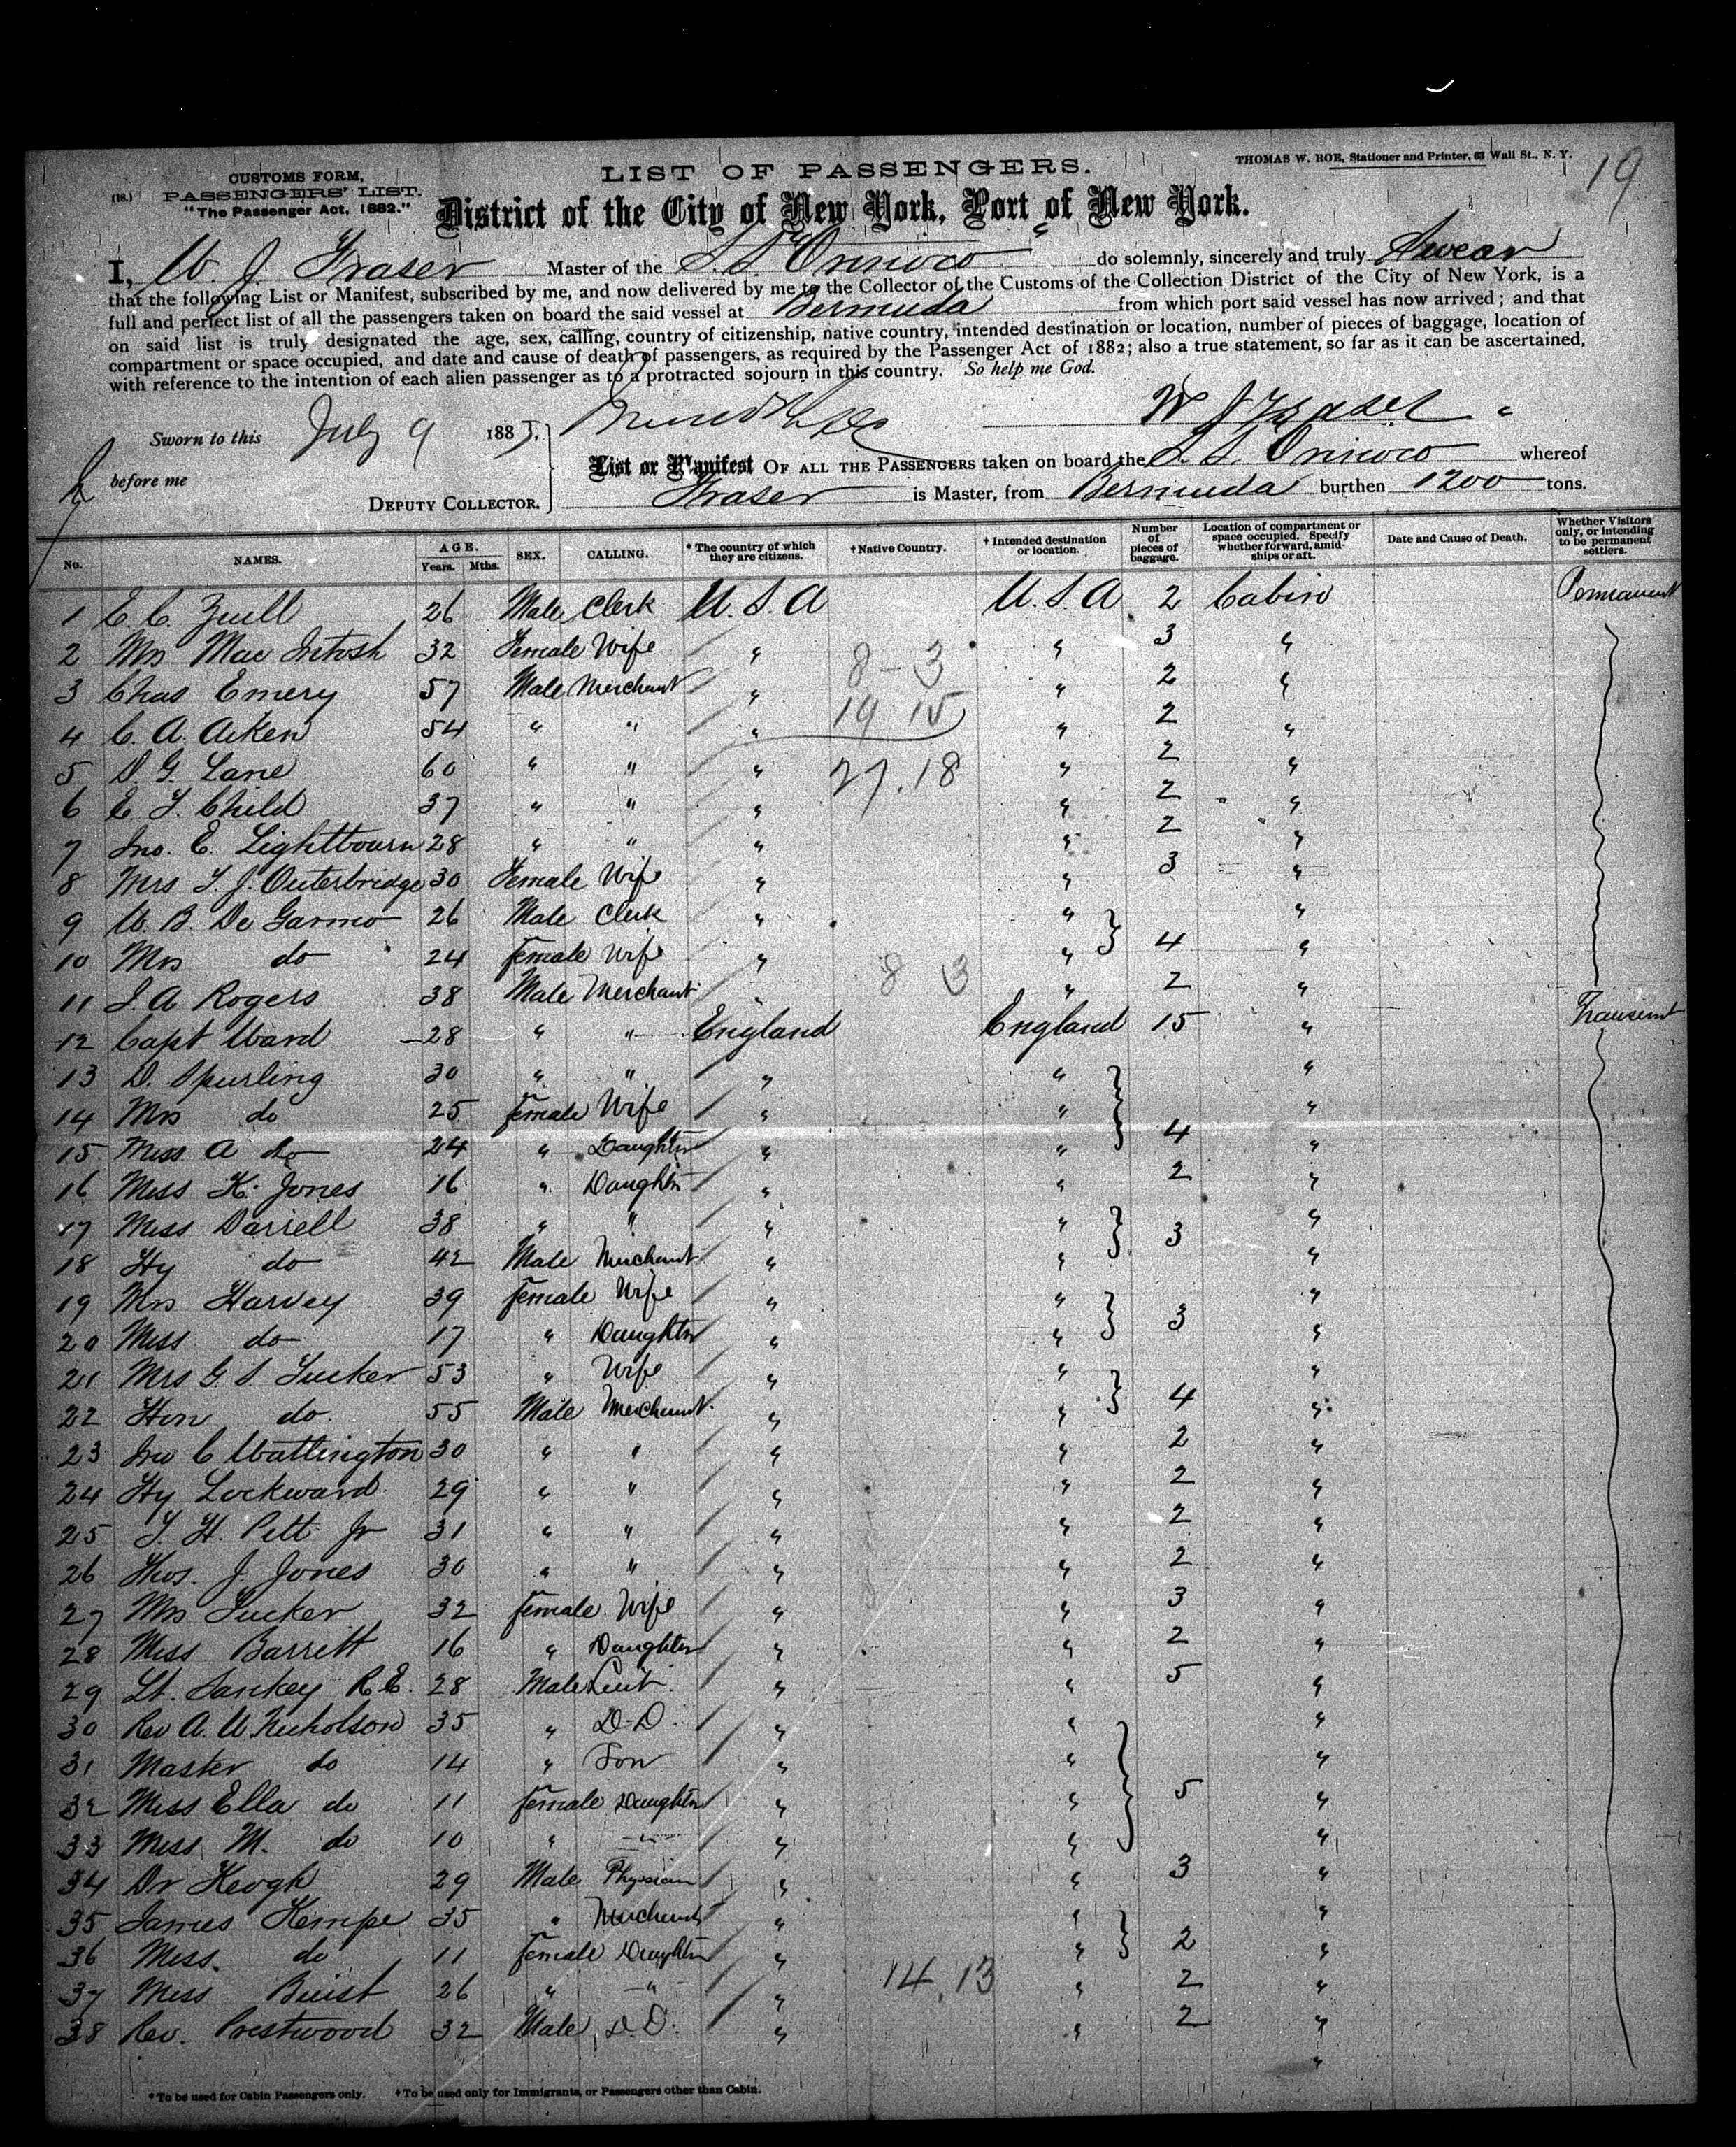 19
THOMAS W. ROE, Stationer and Printer, 63 Wall St., N. Y.
CUSTOMS FORM,
(16.) PASSENGERS' LIST.
"The Passenger Act, 1882."
LIST OF PASSENGERS.
District of the City of New York, Port of New York.
I, W. J. Fraser Master of the S.S. Orinoco do solemnly, sincerely and truly Swear
that the following List or Manifest, subscribed by me, and now delivered by me to the Collector of the Customs of the Collection District of the City of New York, is a
full and perfect list of all the passengers taken on board the said vessel at Bermuda from which port said vessel has now arrived; and that
on said list is truly designated the age, sex, calling, country of citizenship, native country, intended destination or location, number of pieces of baggage, location of
compartment or space occupied, and date and cause of death of passengers, as required by the Passenger Act of 1882; also a true statement, so far as it can be ascertained,
with reference to the intention of each alien passenger as to a protracted sojourn in this country. So help me God.
W J Fraser
Sworn to this July 9 1885,
before me
DEPUTY COLLECTOR.
List or Manifest OF ALL THE PASSENGERS taken on board the S.S. Orinoco whereof
Fraser is Master, from Bermuda burthen 1200 tons.
No. NAMES. AGE. Years. Mths. SEX. CALLING. * The country of which they are citizens. † Native Country. † Intended destination or location. Number of pieces of baggage. Location of compartment or space occupied. Specify whether forward, amidships or aft. Date and Cause of Death. Whether Visitors only, or intending to be permanent settlers.
1 E. C. Zuill 26 Male Clerk U.S.A U.S.A 2 Cabin Permanent
2 Mrs Mac Intosh 32 Female Wife " 8-3 " 3 "
3 Chas Emery 57 Male Merchant " " 2 "
4 C. A. Aiken 54 " " " 19 15 " 2 "
5 D. G. Lane 60 " " " 27.18 " 2 "
6 E. T. Child 37 " " " " 2 "
7 Jno. E. Lightbourn 28 " " " " 2 "
8 Mrs T. J. Outerbridge 30 Female Wife " " 3 "
9 W. B. De Garmo 26 Male Clerk " " "
10 Mrs do 24 female Wife " " 4 "
11 J. A Rogers 38 Male Merchant " 8 3 " 2 "
12 Capt Ward 28 " " England England 15 " Transient
13 D. Spurling 30 " " " " "
14 Mrs do 25 female Wife " " "
15 Miss A do 24 " Daughter " " 4 "
16 Miss K. Jones 16 " Daughter " " 2 "
17 Miss Darrell 38 " " " " "
18 Hy do 42 Male Merchant " " 3 "
19 Mrs Harvey 39 female Wife " " "
20 Miss do 17 " Daughter " " 3 "
21 Mrs G. S. Tucker 53 " Wife " " "
22 Hon do 55 Male Merchant " " 4 "
23 Jno C Watlington 30 " " " " 2 "
24 Hy Lockward 29 " " " " 2 "
25 T. H. Pitt Jr 31 " " " " 2 "
26 Thos. J. Jones 30 " " " " 2 "
27 Mrs Tucker 32 female Wife " " 3 "
28 Miss Barritt 16 " Daughter " " 2 "
29 Lt. Sankey R.E. 28 Male Leut. " " 5 "
30 Rev A. W. Nicholson 35 " D.D. " " "
31 Master do 14 " Son " " "
32 Miss Ella do 11 female Daughter " " 5 "
33 Miss M. do 10 " " " " "
34 Dr Keogh 29 Male Physician " " 3 "
35 James Kempe 35 " Merchant " " "
36 Miss. do 11 female Daughter " " 2 "
37 Miss Buist 26 " " " 14.13 " 2 "
38 Rev. Prestwood 32 Male D.D. " " 2 "
"
* To be used for Cabin Passengers only. † To be used only for Immigrants, or Passengers other than Cabin.